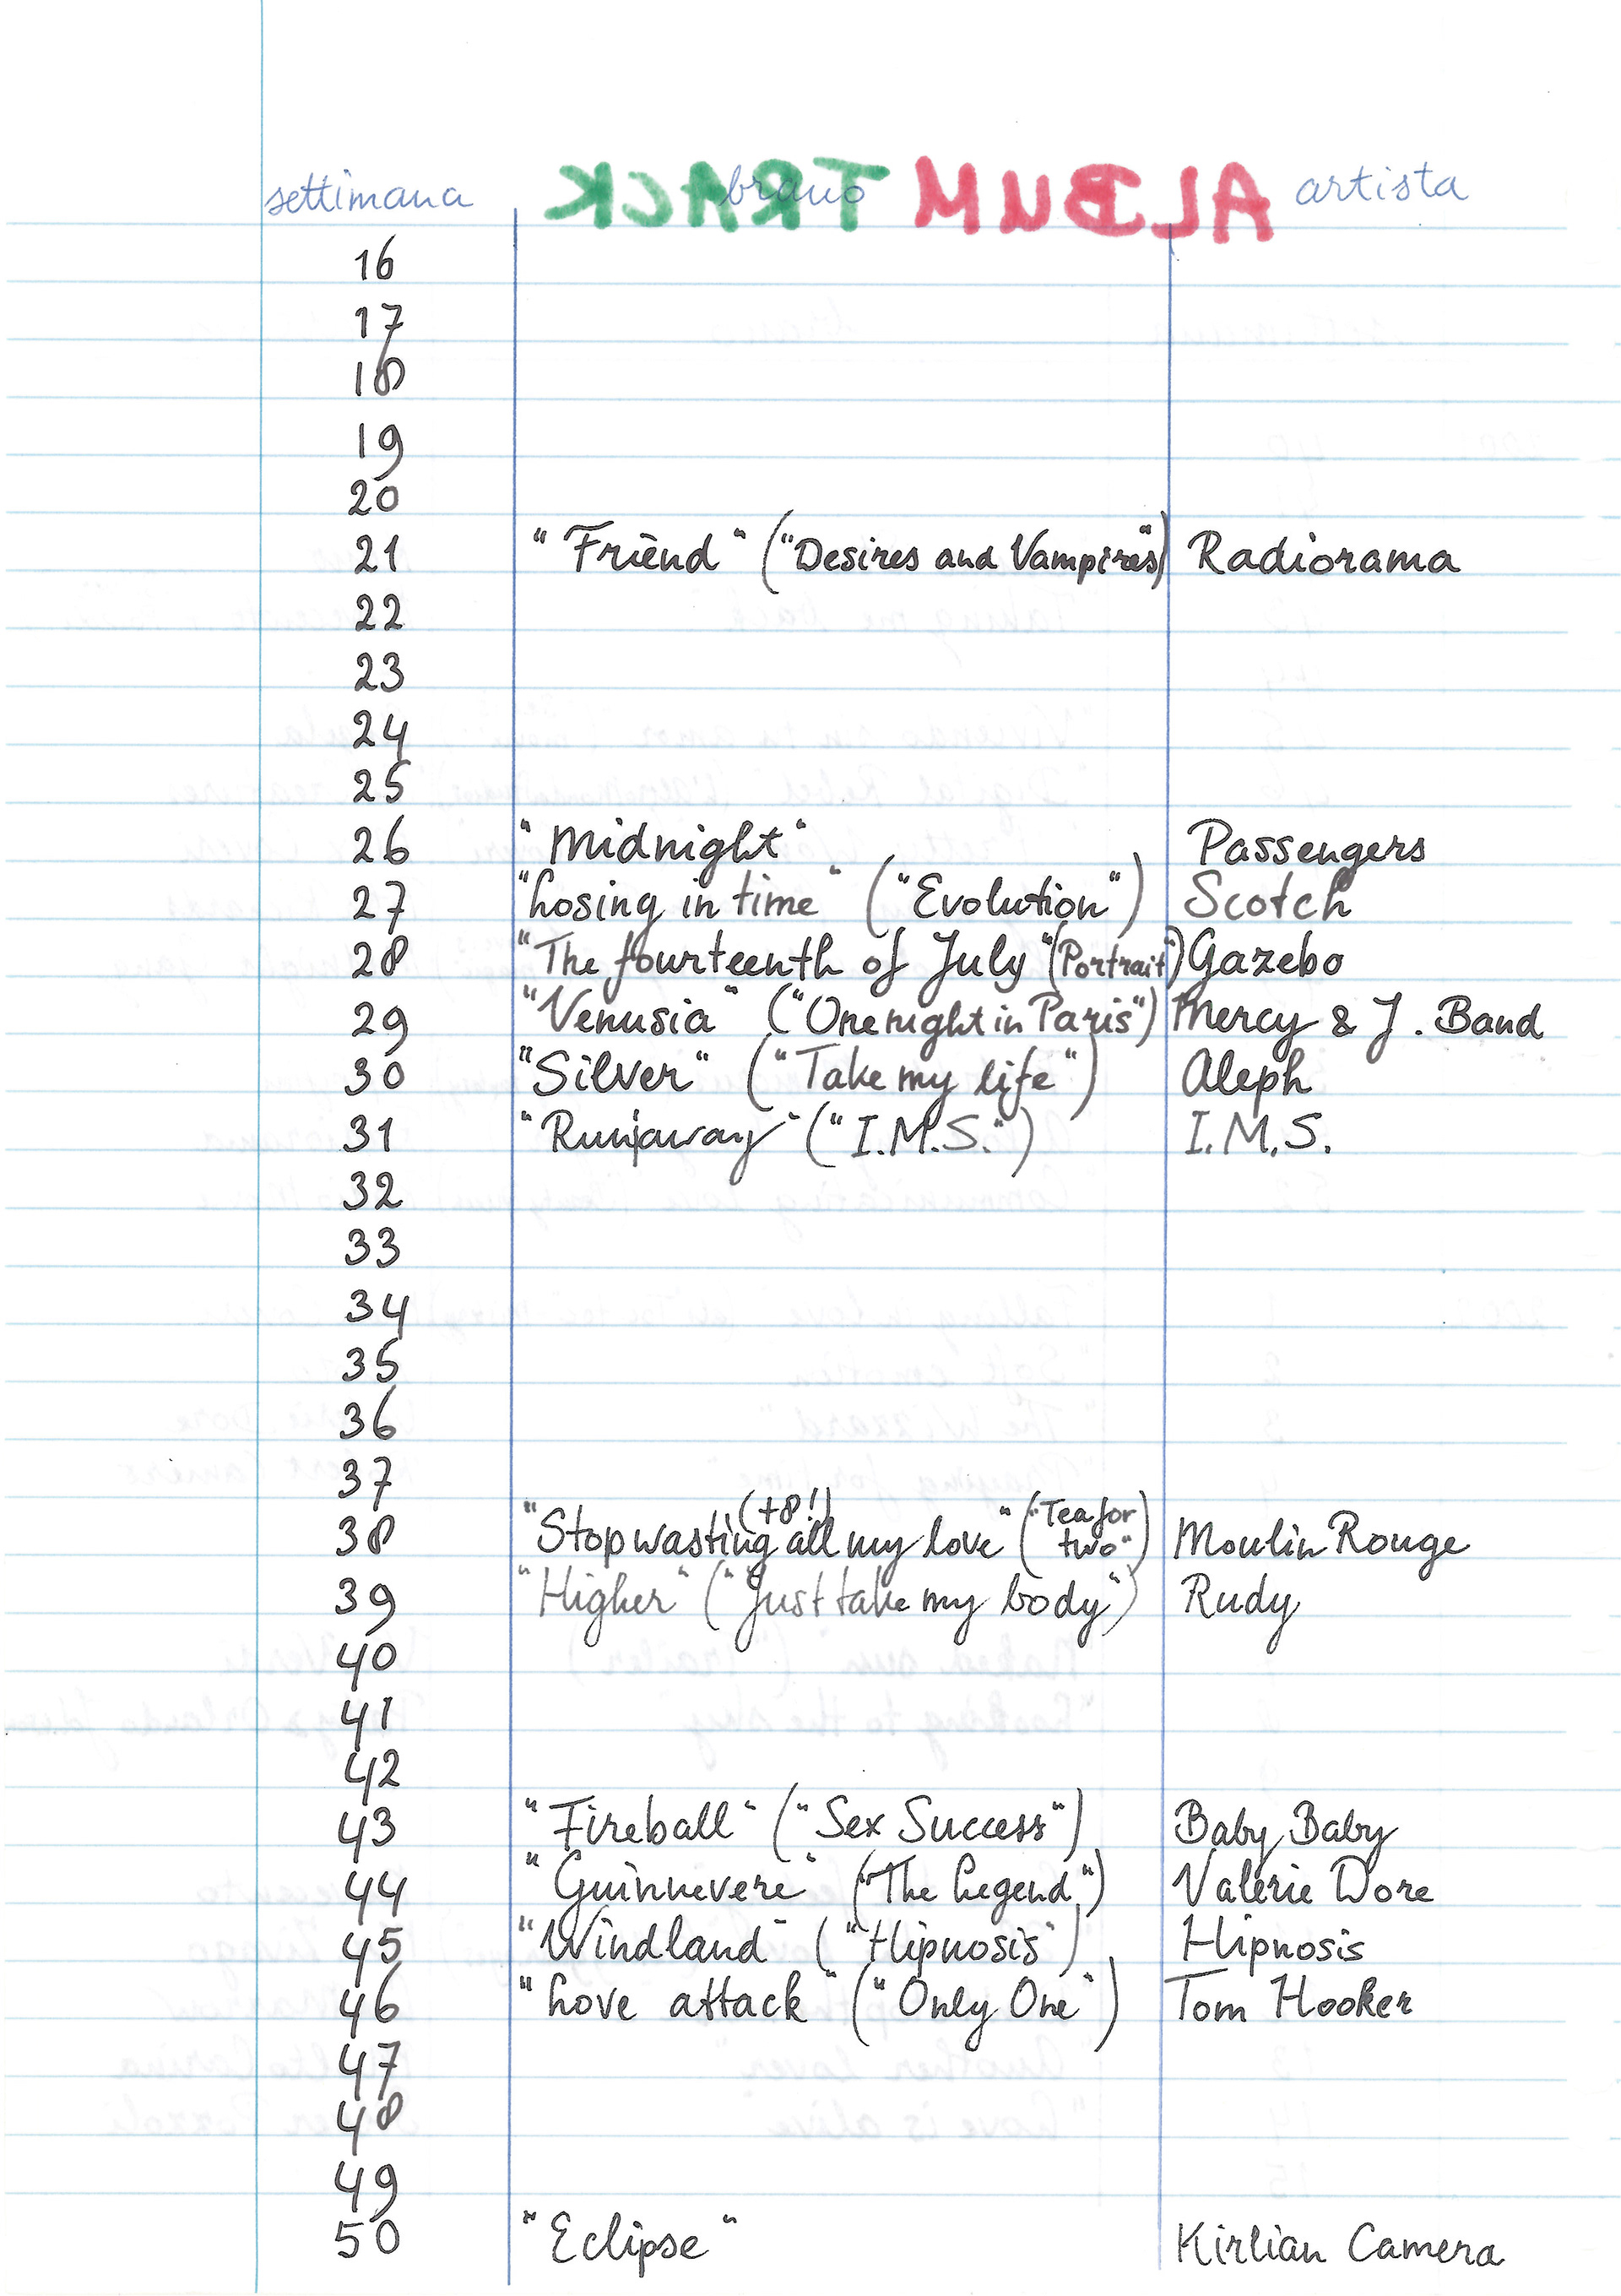 settimana brano artista
ALBUM TRACK
16
17
18
19
20
21 "Friend" ("Desires and Vampires") Radiorama
22
23
24
25
26 "Midnight" Passengers
27 "Losing in time" ("Evolution") Scotch
28 "The fourteenth of July" (Portrait") Gazebo
29 "Venusia" ("One night in Paris") Mercy & J. Band
30 "Silver" ("Take my life") Aleph
31 "Runaway" ("I.M.S.") I.M.S.
32
33
34
35
36
37
(+8!)
38 "Stop wasting all my love" ("Tea for two") Moulin Rouge
39 "Higher" ("Just take my body") Rudy
40
41
42
43 "Fireball" ("Sex Success") Baby Baby
44 "Guinnevere" ("The Legend") Valerie Dore
45 "Windland" ("Hipnosis") Hipnosis
46 "Love attack" ("Only One") Tom Hooker
47
48
49
50 "Eclipse" Kirlian Camera